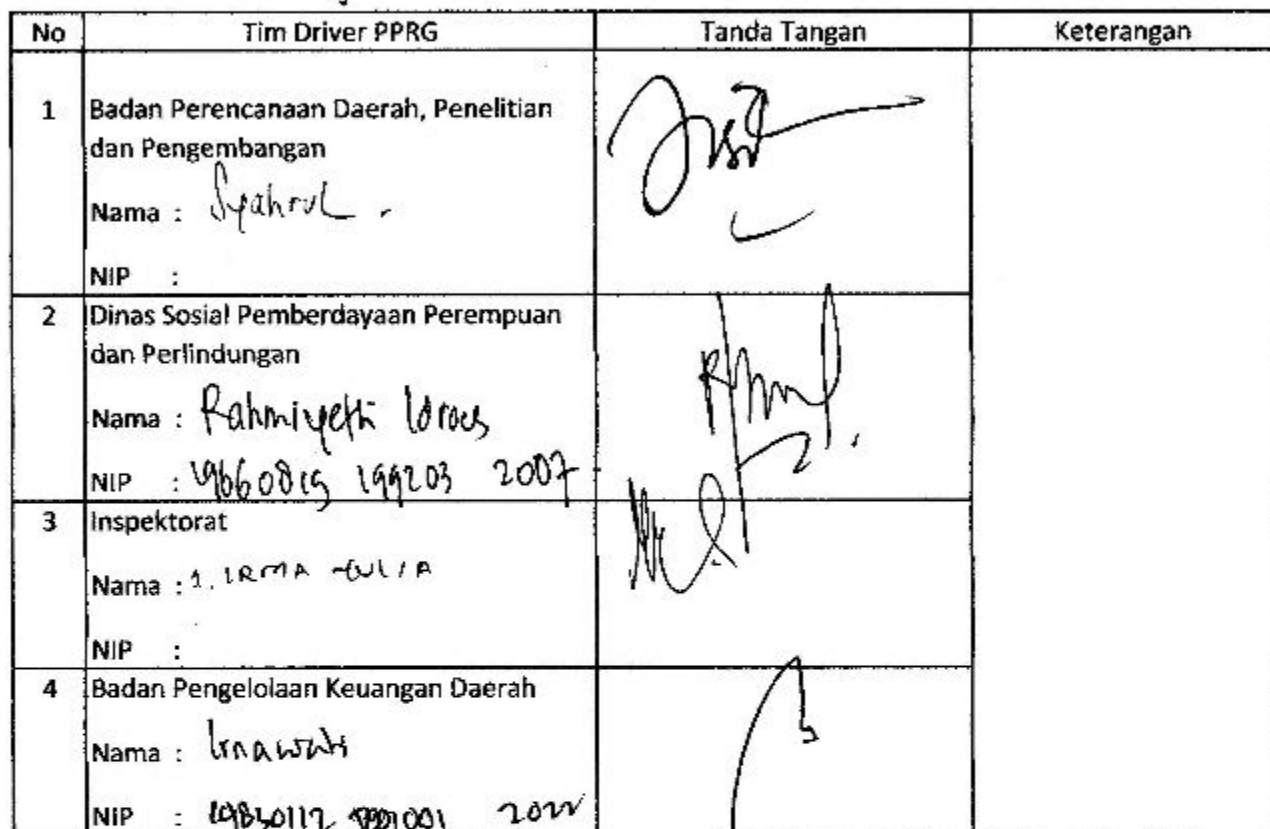 No Tim Driver PPRG Tanda Tangan Keterangan
1 Badan Perencanaan Daerah, Penelitian
dan Pengembangan
Nama : Syahrul .
NIP :
2 Dinas Sosial Pemberdayaan Perempuan
dan Perlindungan
Nama : Rahmiyetti Idroes
NIP : 19660819 199203 2007
3 Inspektorat
Nama : 1. IRMA
NIP :
4 Badan Pengelolaan Keuangan Daerah
Nama : Irnawati
NIP :